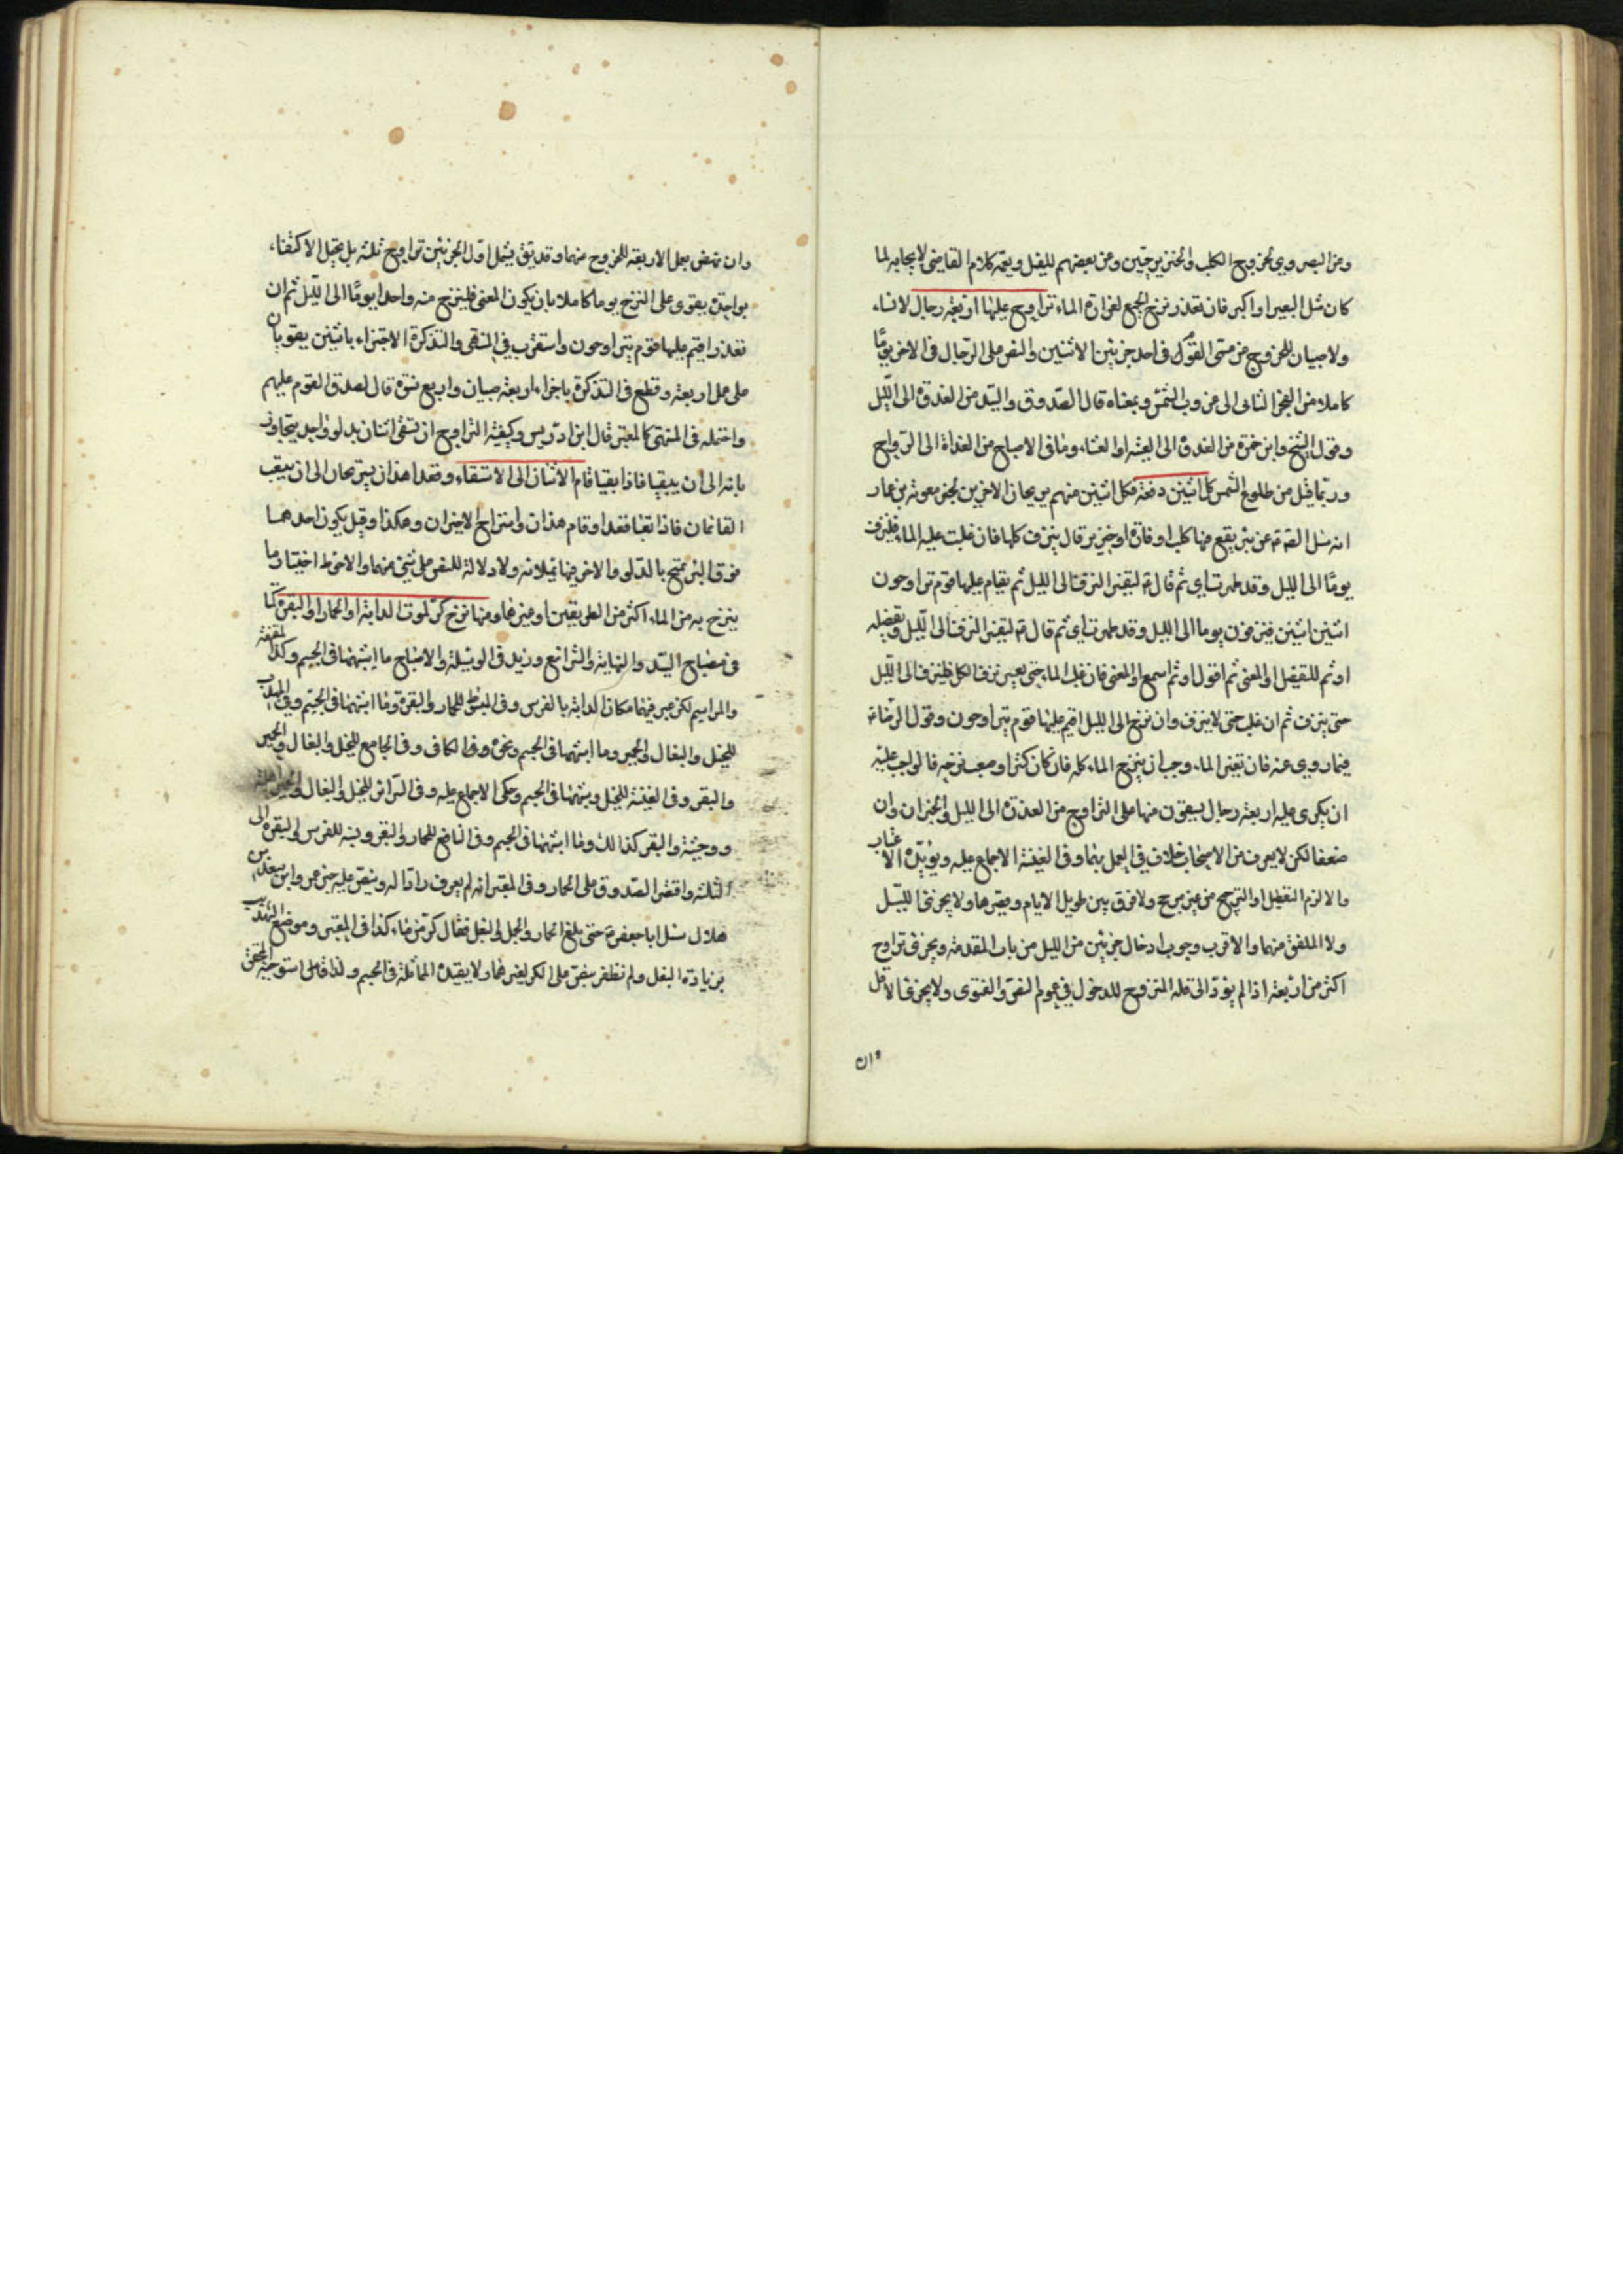 وعن البصروي لخروج الكلب والخنزير حيين وعن بعضهم للفيل ويعمه كلام القاضي لايجابه لما
كان مثل البعير او اكبر فان تعذر نزح الجميع لغزارة الماء تراوح عليها اربعة رجال لا نساء
ولا صبيان للخروج عن مسمى القوم في احد جزئين الاثنين والنص على الرجال في الاخر يومًا
كاملا من الفجر الثاني الى غروب الشمس وبمعناه قال الصدوق والسيد من الغدوة الى الليل
وقول الشيخ وابن حمزة من الغدوة الى العشية او العشاء وما في الاصباح من الغداة الى الرواح
وربما قيل من طلوع الشمس كل اثنين دفعة فكل اثنين منهم يريحان الاخرين لخبر معوية بن عمار
انه سئل الصم عن بئر يقع فيها كلب او فارة او خنزير قال ينزف كلها فان غلبت عليه الماء فلينزف
يومًا الى الليل وقد طهرت اي ثم قال لتقيد النزف الى الليل ثم يقام عليها قوم تراوحون
اثنين اثنين فينزفون يوما الى الليل وقد طهرت اي ثم قال لتقيد النزف الى الليل وتفصيله
او ثم للتفصيل او المعنى ثم اقول او ثم اسمع او المعنى فان غلب الماء حتى يعسر نزف الكل فلينزف الى الليل
حتى ينزف ثم ان غلب حتى لا ينزف وان نزح الى الليل اقيم عليها قوم يتراوحون وقول الرضا
فيما روي عنه فان تغير الماء وجب ان ينزح الماء كله فان كان كثيرا وصعب نزحه فالواجب عليه
ان يكرى عليه اربعة رجال يستقون منها على التراوح من الغدوة الى الليل والخبران وان
ضعفا لكن لا يعرف من الاصحاب خلاف في العمل بهما وفي الغنية الاجماع عليه ويؤيده الاعتبار
والا لزم التعطيل او الترجيح من غير مرجح ولا فرق بين طويل الايام وقصيرها ولا يجزئ الليل
ولا الملفق منهما والاقرب وجوب ادخال جزئين من الليل من باب المقدمة ويجزئ تراوح
اكثر من اربعة اذا لم يؤد الى قلة المنزوح للدخول في عموم النص والفتوى ولا يجزئ الاقل
وان
وان نهض بعمل الاربعة للخروج منهما وقد يتق يشمل اول الجزئين تراوح ثلثة بل يحتمل الاكتفاء
بواحد يقوى على النزح يوما كاملا بان يكون المعنى فلينزح منه واحد يومًا الى الليل ثم ان
تعذر اقيم عليها قوم يتراوحون واستقرب في المنتهى والتذكرة الاجتزاء باثنين يقويان
على عمل اربعة وقطع في التذكرة باجزاء اربعة صبيان واربع نسوة قال لصدق القوم عليهم
واحتمله في المنتهى كالمعتبر قال ابن ادريس وكيفية التراوح ان يستقي اثنان بدلو واحد يتجاذبانه
الى ان يتعبا فاذا تعبا قام الاثنان الى الاستقاء وقعدا هذان يستريحان الى ان يتعب
القائمان فاذا تعبا قعدا وقام هذان واستراح الاخران وهكذا وقيل يكون احدهما
فوق البئر يمتح بالدلو والاخر فيها يملأنه ولا دلالة للنص على شئ منهما والاحوط اختيار ما
ينزح به من الماء اكثر من الطريقين او غيرها ومنها نزح كر لموت الدابة او الحمار او البقرة كما
في مصباح السيد والنهاية والشرائع وزيد في الوسيلة والاصباح ما اشبهها في الجسم وكذا المقنعة
والمراسم لكن عبر فيهما مكان الدابة بالفرس وفي المبسوط للحمار والبقرة وما اشبهها في الجسم وفي المهذب
للخيل والبغال والحمير وما اشبهها في الجسم ونحوه في الكافي وفي الجامع للخيل والبغال والحمير
والبقر وفي الغنية للخيل وشبهها في الجسم وحكى الاجماع عليه وفي السرائر للخيل والبغال والحمير
ووحشية والبقر كذلك وما اشبهها في الجسم وفي النافع للحمار والبقر وبنيه للفرس والبقرة الى
الثلثة واقتصر الصدوق على الحمار وفي المعتبر انه لم يعرف رادا له وينص عليه خبر عمرو بن سعيد بن
هلال سئل ابا جعفر حتى بلغ الحمار والجمل والبغل فقال كر من ماء كذا في المعتبر وموضع التهذيب
بزيادة البغل ولم نظفر بنص على الكر لغيرها ولا يفيده المماثلة في الجسم ولذا استوجه المحقق